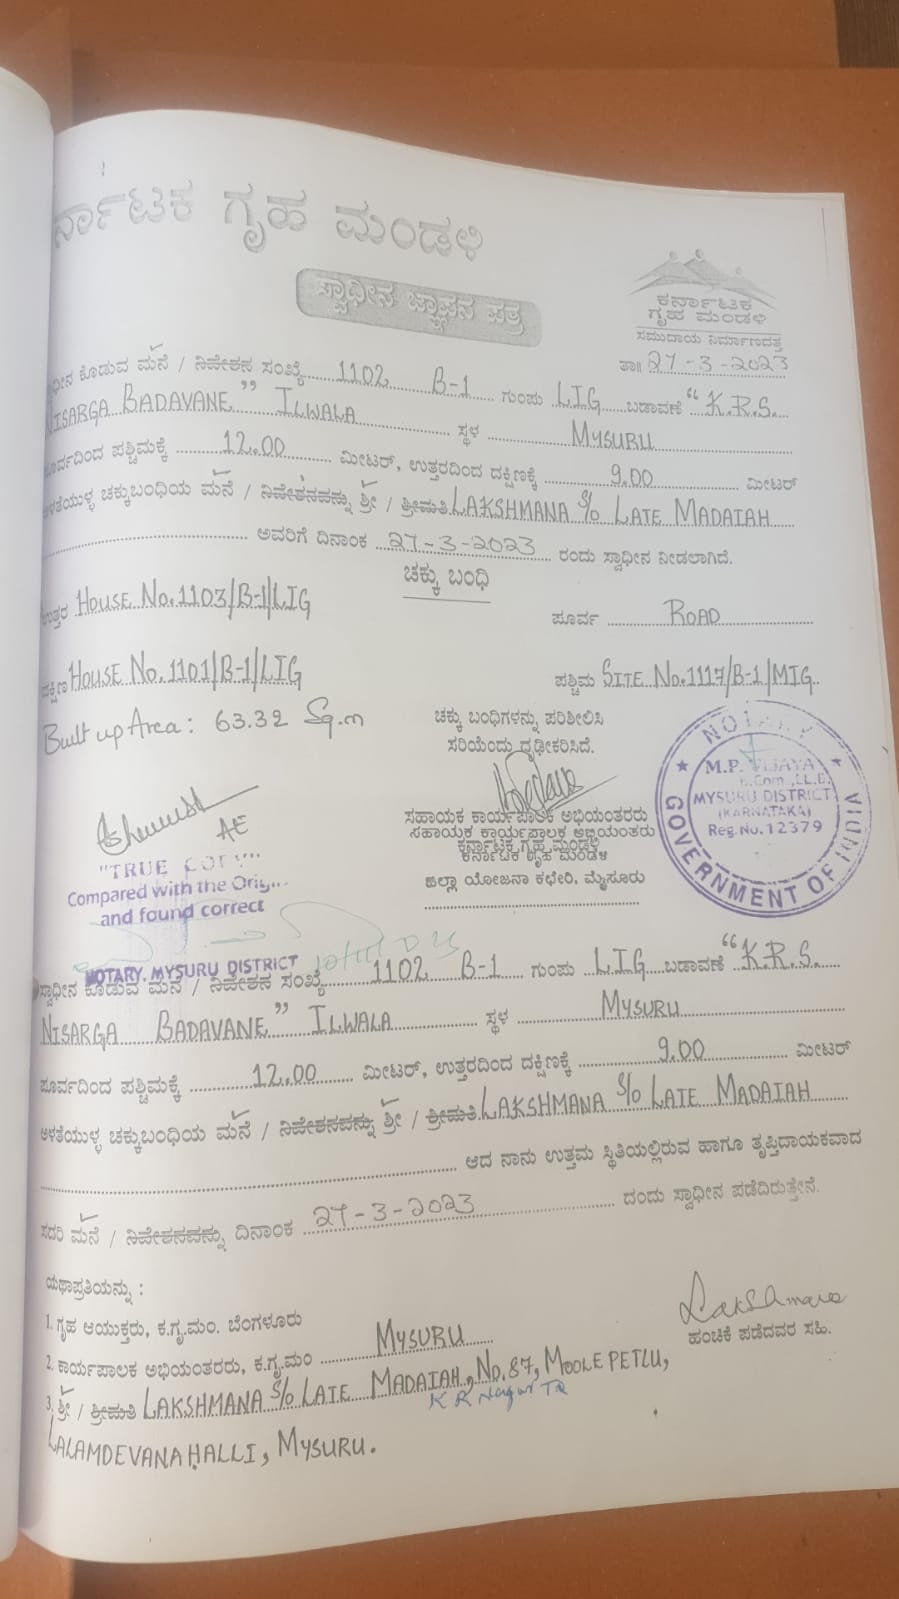 ರ್ನಾಟಕ ಗೃಹ ಮಂಡಳಿ
ಸ್ವಾಧೀನ ಜ್ಞಾಪನ ಪತ್ರ
ಕರ್ನಾಟಕ
ಗೃಹ ಮಂಡಳಿ
ಸಮುದಾಯ ನಿರ್ಮಾಣದತ್ತ
ತಾ॥ 27-3-2023
ಧೀನ ಕೊಡುವ ಮನೆ / ನಿವೇಶನ ಸಂಖ್ಯೆ 1102 B-1 ಗುಂಪು LIG ಬಡಾವಣೆ "K.R.S.
NISARGA BADAVANE" ILWALA ಸ್ಥಳ MYSURU
ಪೂರ್ವದಿಂದ ಪಶ್ಚಿಮಕ್ಕೆ 12.00 ಮೀಟರ್, ಉತ್ತರದಿಂದ ದಕ್ಷಿಣಕ್ಕೆ 9.00 ಮೀಟರ್
ಅಳತೆಯುಳ್ಳ ಚಕ್ಕುಬಂಧಿಯ ಮನೆ / ನಿವೇಶನವನ್ನು ಶ್ರೀ / ಶ್ರೀಮತಿ LAKSHMANA S/O LATE MADAIAH
ಅವರಿಗೆ ದಿನಾಂಕ 27-3-2023 ರಂದು ಸ್ವಾಧೀನ ನೀಡಲಾಗಿದೆ.
ಚಕ್ಕು ಬಂಧಿ
ಉತ್ತರ HOUSE No.1103/B-1/LIG ಪೂರ್ವ ROAD
ದಕ್ಷಿಣ HOUSE No.1101/B-1/LIG ಪಶ್ಚಿಮ SITE No.1117/B-1/MIG
Built up Area: 63.32 Sq.m
ಚಕ್ಕು ಬಂಧಿಗಳನ್ನು ಪರಿಶೀಲಿಸಿ
ಸರಿಯೆಂದು ದೃಢೀಕರಿಸಿದೆ.
AE
ಸಹಾಯಕ ಕಾರ್ಯಪಾಲಕ ಅಭಿಯಂತರರು
ಸಹಾಯಕ ಕಾರ್ಯಪಾಲಕ ಅಭಿಯಂತರರು
ಕರ್ನಾಟಕ ಗೃಹ ಮಂಡಳಿ
ಕರ್ನಾಟಕ ಗೃಹ ಮಂಡಳಿ
ಜಿಲ್ಲಾ ಯೋಜನಾ ಕಛೇರಿ, ಮೈಸೂರು
NOTARY
M.P. VIJAYA
B.Com.,LL.B.
MYSURU DISTRICT
(KARNATAKA)
Reg.No.12379
GOVERNMENT OF INDIA
"TRUE COPY"
Compared with the Orig...
and found correct
NOTARY. MYSURU DISTRICT
ಸ್ವಾಧೀನ ಕೊಡುವ ಮನೆ / ನಿವೇಶನ ಸಂಖ್ಯೆ 1102 B-1 ಗುಂಪು LIG ಬಡಾವಣೆ "K.R.S.
NISARGA BADAVANE" ILWALA ಸ್ಥಳ MYSURU
ಪೂರ್ವದಿಂದ ಪಶ್ಚಿಮಕ್ಕೆ 12.00 ಮೀಟರ್, ಉತ್ತರದಿಂದ ದಕ್ಷಿಣಕ್ಕೆ 9.00 ಮೀಟರ್
ಅಳತೆಯುಳ್ಳ ಚಕ್ಕುಬಂಧಿಯ ಮನೆ / ನಿವೇಶನವನ್ನು ಶ್ರೀ / ಶ್ರೀಮತಿ LAKSHMANA S/O LATE MADAIAH
ಆದ ನಾನು ಉತ್ತಮ ಸ್ಥಿತಿಯಲ್ಲಿರುವ ಹಾಗೂ ತೃಪ್ತಿದಾಯಕವಾದ
ಸದರಿ ಮನೆ / ನಿವೇಶನವನ್ನು ದಿನಾಂಕ 27-3-2023 ದಂದು ಸ್ವಾಧೀನ ಪಡೆದಿರುತ್ತೇನೆ.
ಯಥಾಪ್ರತಿಯನ್ನು :
1. ಗೃಹ ಆಯುಕ್ತರು, ಕ.ಗೃ.ಮಂ. ಬೆಂಗಳೂರು
Lakshmana
ಹಂಚಿಕೆ ಪಡೆದವರ ಸಹಿ.
2. ಕಾರ್ಯಪಾಲಕ ಅಭಿಯಂತರರು, ಕ.ಗೃ.ಮಂ MYSURU
3. ಶ್ರೀ / ಶ್ರೀಮತಿ LAKSHMANA S/O LATE MADAIAH, No.87, MOOLEPETLU,
K R Nagar TQ
LALAMDEVANAHALLI, MYSURU.